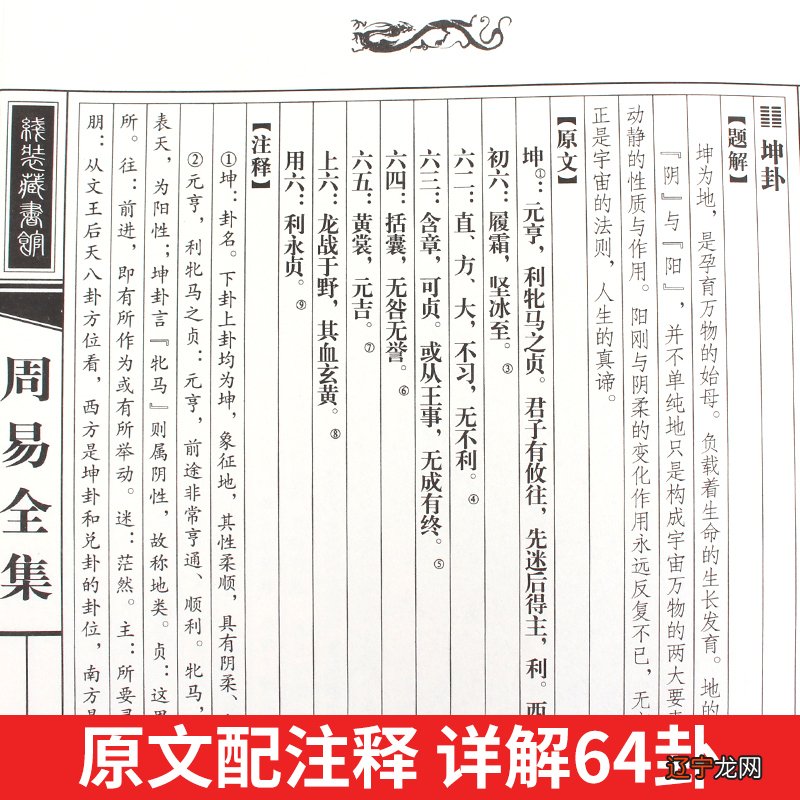 坤卦
【题解】
坤为地，是孕育万物的始母。负载着生命的生长发育。地的
『阴』与『阳』，并不单纯地只是构成宇宙万物的两大要素
动静的性质与作用。阳刚与阴柔的变化作用永远反复不已，无
正是宇宙的法则，人生的真谛。
【原文】
坤①：元亨，利牝马之贞。君子有攸往，先迷后得主，利。西
初六：履霜，坚冰至。③
六二：直、方、大，不习，无不利。④
六三：含章，可贞。或从王事，无成有终。⑤
六四：括囊，无咎无誉。⑥
六五：黄裳，元吉。⑦
上六：龙战于野，其血玄黄。⑧
用六：利永贞。⑨
【注释】
①坤：卦名。下卦上卦均为坤，象征地，其性柔顺，具有阴柔、
②元亨，利牝马之贞：元亨，前途非常亨通、顺利。牝马，
表天，为阳性；坤卦言『牝马』则属阴性，故称地类。贞：这里
所。往：前进，即有所作为或有所举动。迷：茫然。主：所要寻
朋：从文王后天八卦方位看，西方是坤卦和兑卦的卦位，南方是
线装藏书馆
周易全集
原文配注释 详解64卦
辽宁龙网